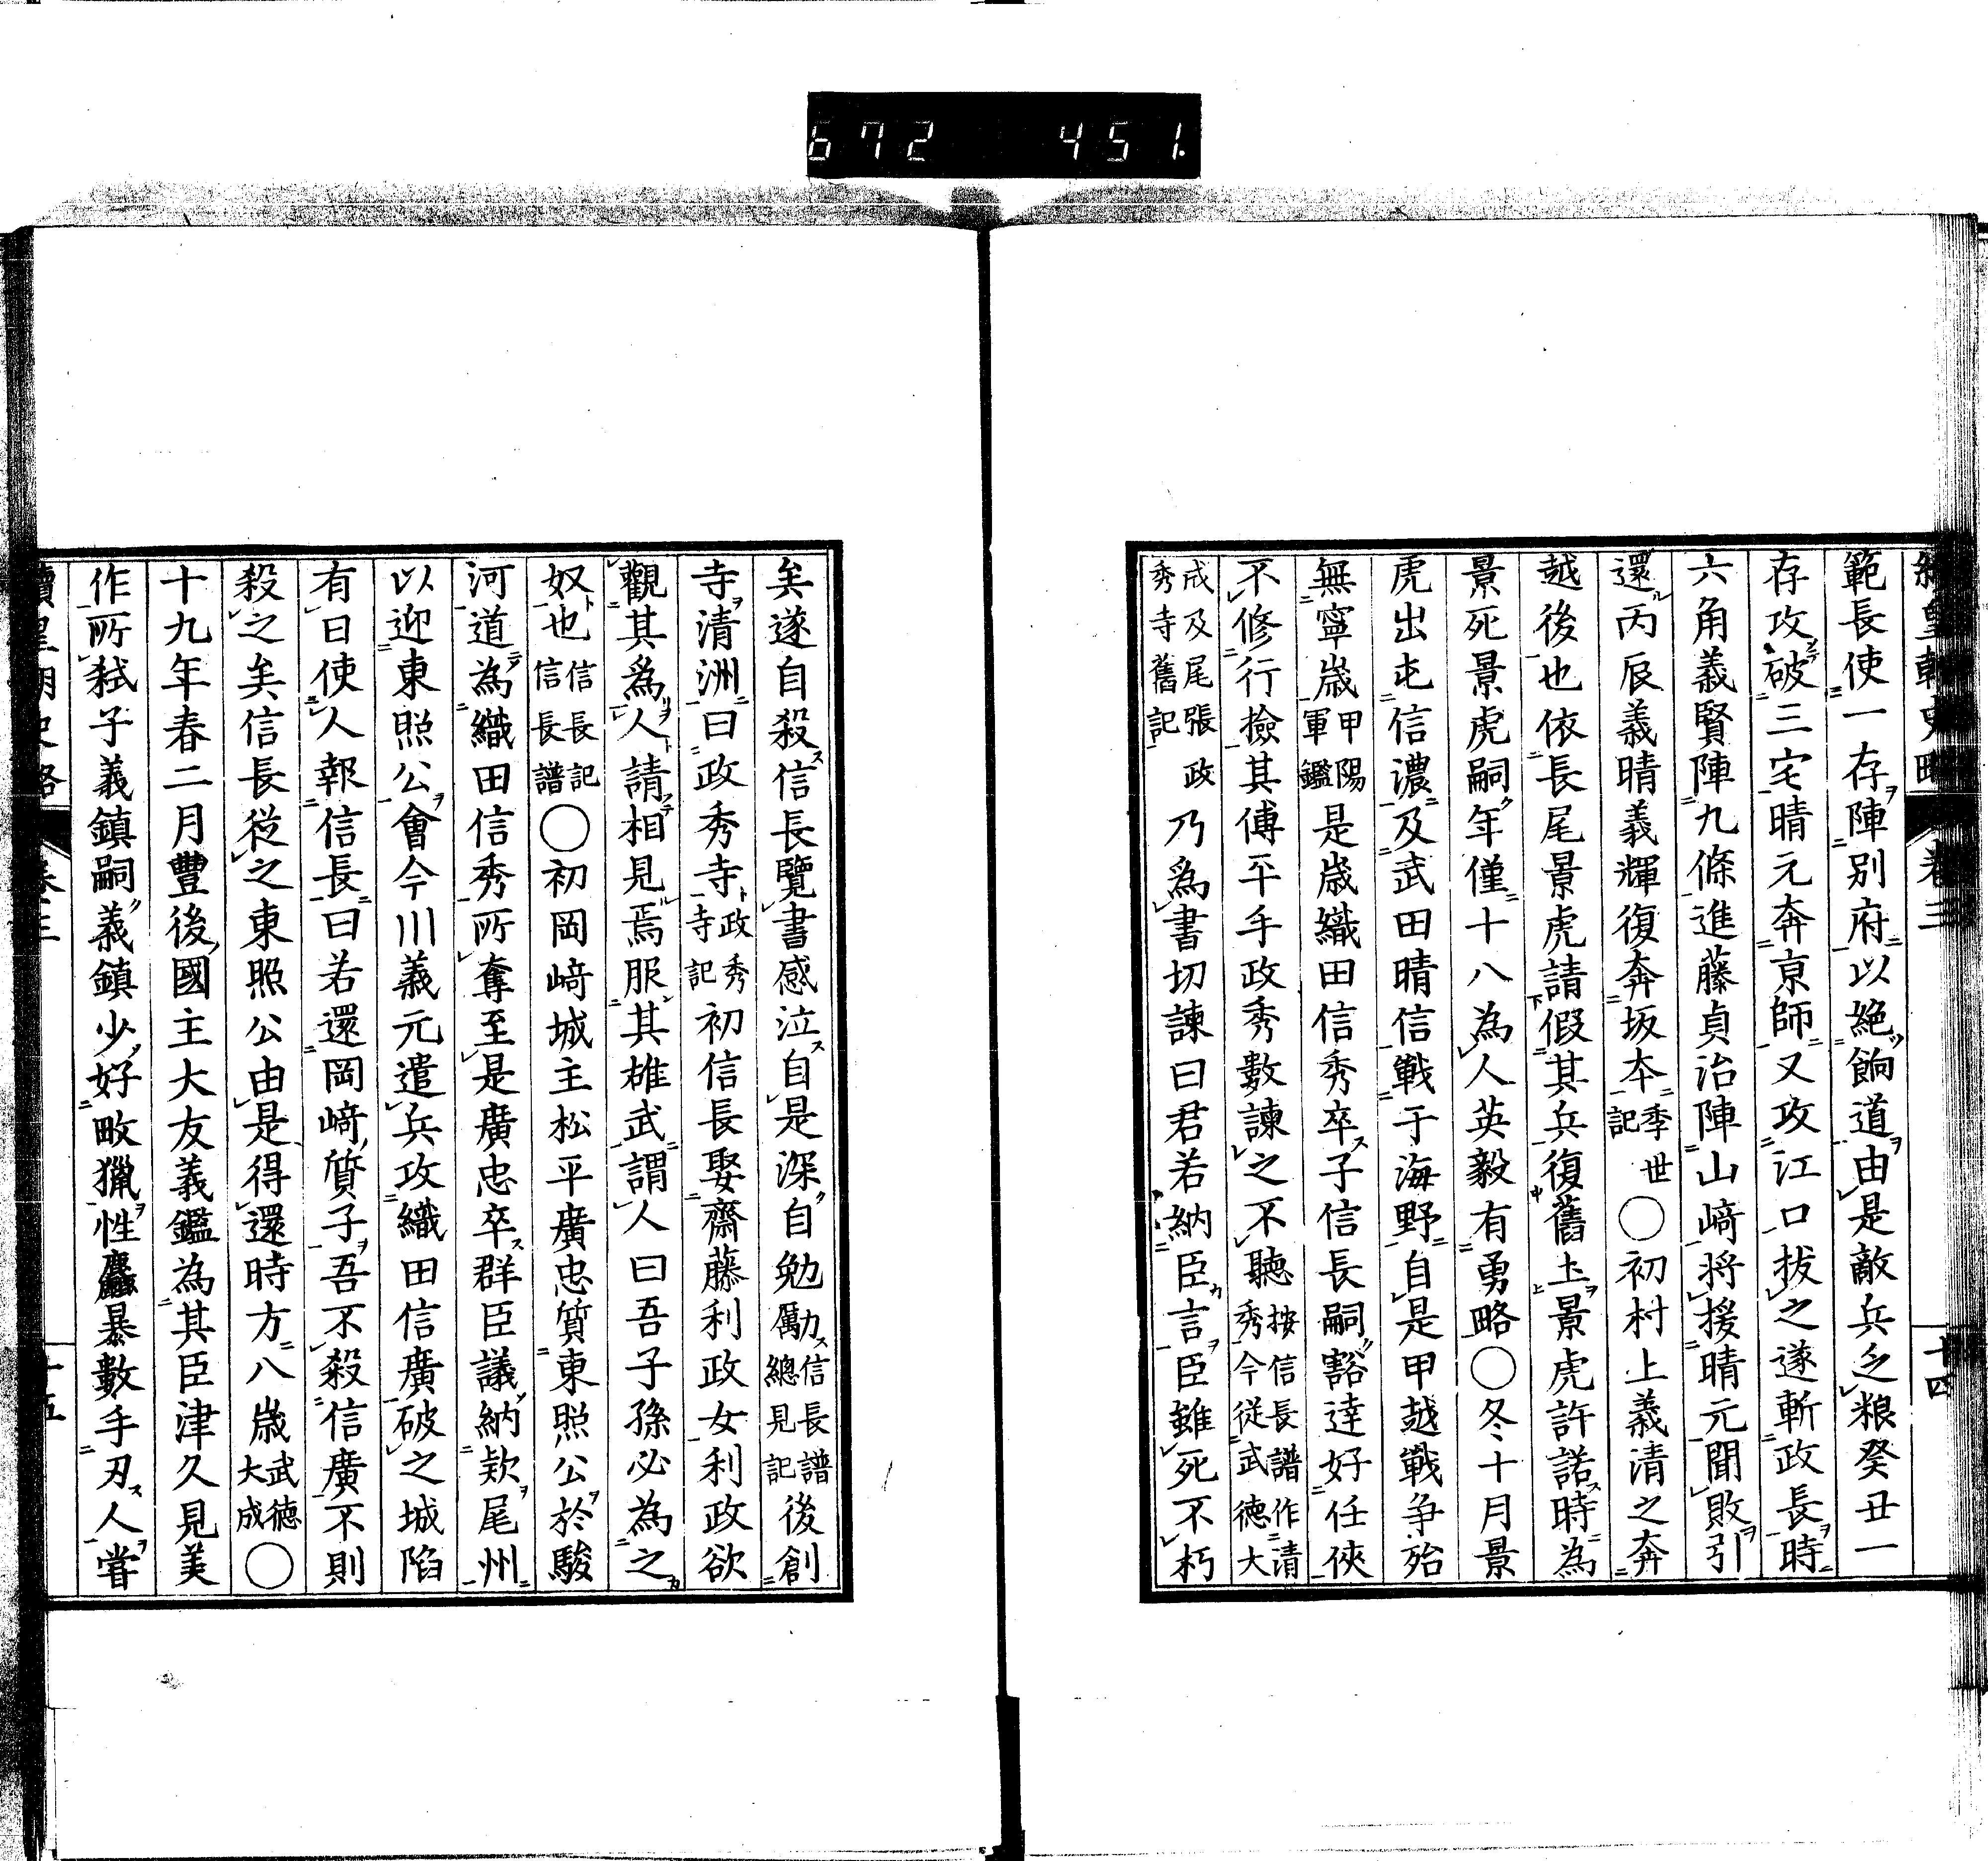 672 451
範長使一存陣別府以絶餉道由是敵兵乏粮癸丑一
存攻破三宅晴元奔京師又攻江口拔之遂斬政長時
六角義賢陣九條進藤貞治陣山﨑将援晴元聞敗引
還丙辰義晴義輝復奔坂本季世記〇初村上義清之奔
越後也依長尾景虎請假其兵復舊土景虎許諾時為
景死景虎嗣年僅十八為人英毅有勇略〇冬十月景
虎出屯信濃及武田晴信戰于海野自是甲越戰争殆
無寧歳甲陽軍鑑是歳織田信秀卒子信長嗣豁達好任俠
不修行撿其傅平手政秀數諫之不聽按信長譜作清秀今従武德大
成及尾張政秀寺舊記乃爲書切諫曰君若納臣言臣雖死不朽
矣遂自殺信長覽書感泣自是深自勉勵信長譜總見記後創
寺清洲曰政秀寺政秀寺記初信長娶齋藤利政女利政欲
觀其爲人請相見焉服其雄武謂人曰吾子孫必為之
奴也信長記信長譜〇初岡﨑城主松平廣忠質東照公於駿
河道為織田信秀所奪至是廣忠卒群臣議納欵尾州
以迎東照公會今川義元遣兵攻織田信廣破之城陷
有日使人報信長曰若還岡﨑質子吾不殺信廣不則
殺之矣信長從之東照公由是得還時方八歳武德大成〇
十九年春二月豐後國主大友義鑑為其臣津久見美
作所弑子義鎮嗣義鎮少好畋獵性麤暴數手刃人嘗
續皇朝史略 卷三 十五